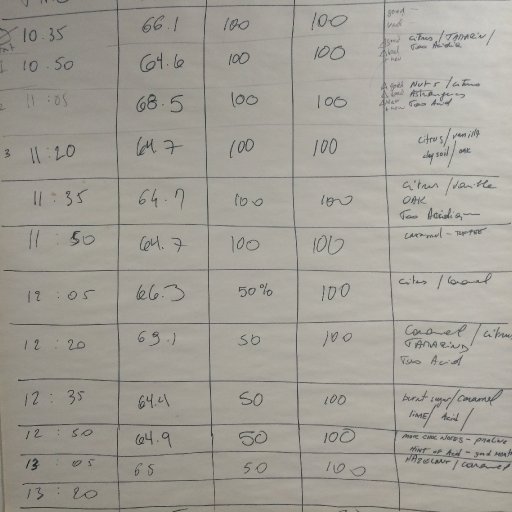 10.35 66.1 100 100 good
citrus / TAMARIN /
Too Acidic
1 10.50 64.6 100 100
2 11:05 68.5 100 100 Nuts / citrus
Too Acid
3 11:20 64.7 100 100 citrus/vanilla
dry soil / OAK
11:35 64.7 100 100 citrus / vanilla
OAK
Too
11:50 64.7 100 100 caramel -
12:05 66.3 50% 100 citrus / Caramel
12:20 63.1 50 100 Caramel / citrus
TAMARIND
Too Acid
12:35 64.4 50 100 burnt sugar/caramel
lime/ Acid /
12:50 64.9 50 100 more NOTES - praline
HINT OF Acid - good
13:05 65 50 100 HAZELNUT / caramel
13:20